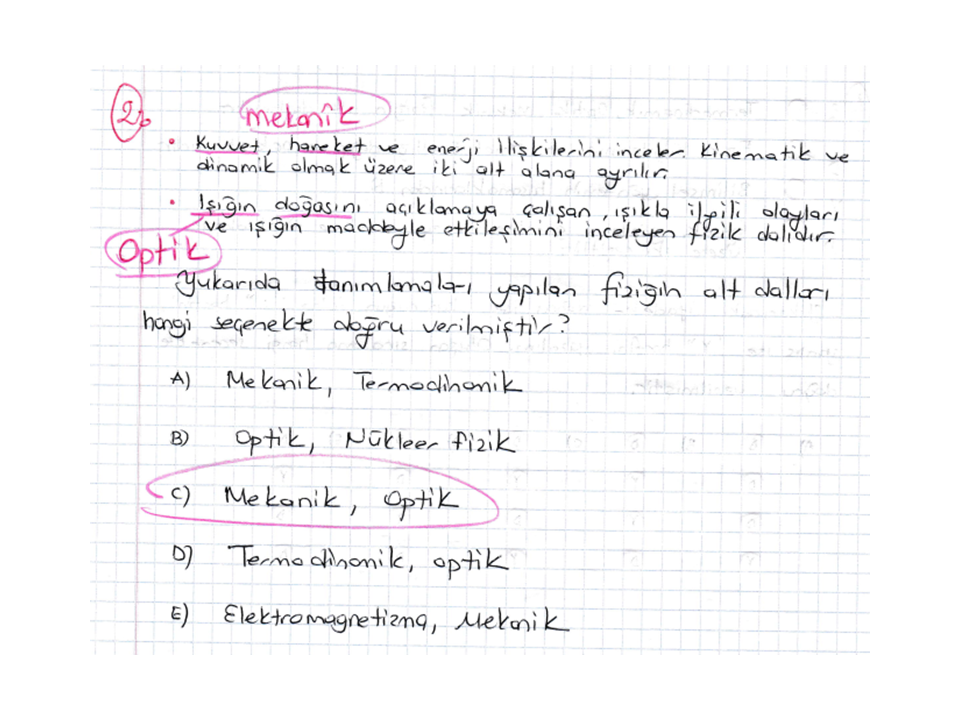 2.
mekanik
• Kuvvet, hareket ve enerji ilişkilerini inceler. Kinematik ve
dinamik olmak üzere iki alt alana ayrılır.
• Işığın doğasını açıklamaya çalışan, ışıkla ilgili olayları
ve ışığın maddeyle etkileşimini inceleyen fizik dalıdır.
Optik
Yukarıda tanımlamaları yapılan fiziğin alt dalları
hangi seçenekte doğru verilmiştir?
A) Mekanik, Termodinamik
B) Optik, Nükleer fizik
C) Mekanik, Optik
D) Termodinamik, optik
E) Elektromagnetizma, Mekanik